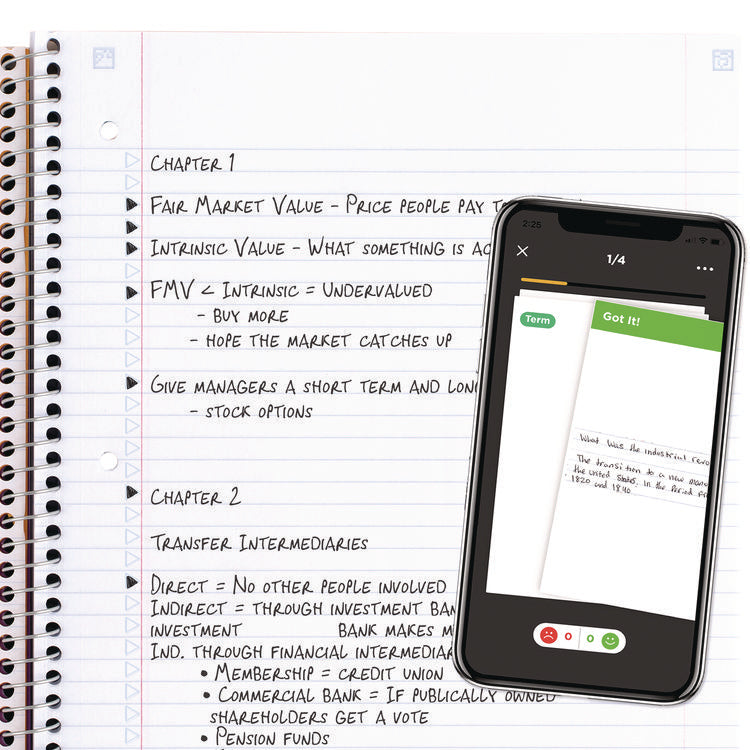 CHAPTER 1
FAIR MARKET VALUE - PRICE PEOPLE PAY
INTRINSIC VALUE - WHAT SOMETHING IS
FMV < INTRINSIC = UNDERVALUED
- BUY MORE
- HOPE THE MARKET CATCHES UP
GIVE MANAGERS A SHORT TERM AND
- STOCK OPTIONS
CHAPTER 2
TRANSFER INTERMEDIARIES
DIRECT = NO OTHER PEOPLE INVOLVED
INDIRECT = THROUGH INVESTMENT
INVESTMENT BANK MAKES
IND. THROUGH FINANCIAL
• MEMBERSHIP = CREDIT UNION
• COMMERCIAL BANK = IF PUBLICALLY OWNED
SHAREHOLDERS GET A VOTE
• PENSION FUNDS
2:25
1/4
Term
Got It!
What was the industrial
The transition to a new
the United States. In the period
1820 and 1840
0 0